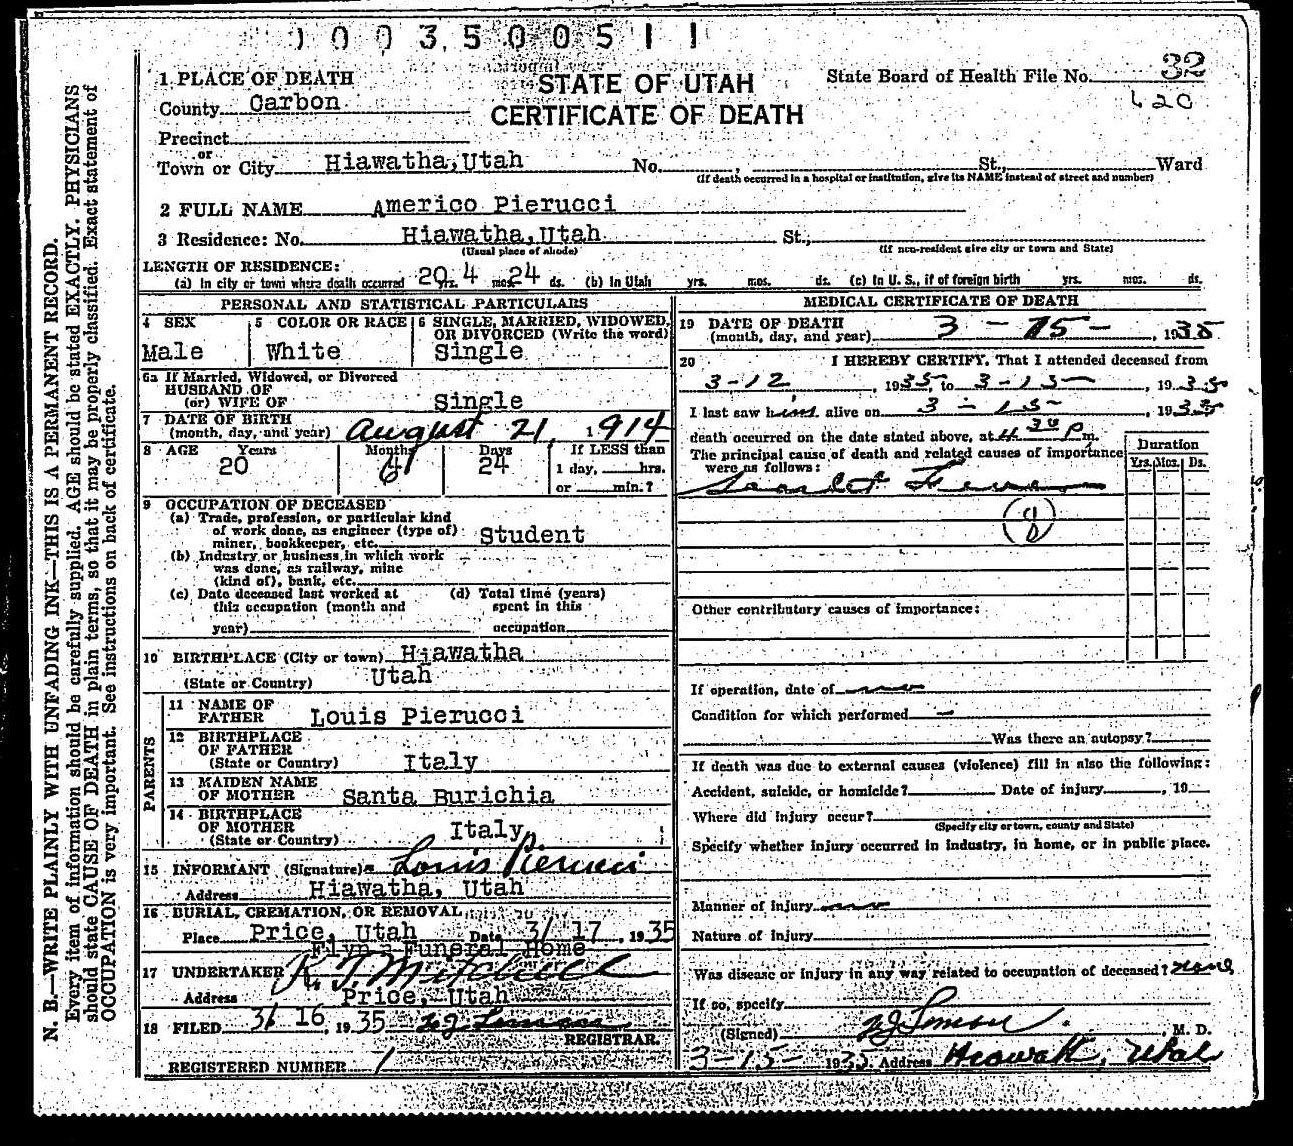 1003500511
1 PLACE OF DEATH
STATE OF UTAH
CERTIFICATE OF DEATH
State Board of Health File No. 32
620
County Carbon
Precinct
or
Town or City Hiawatha, Utah No. , St., Ward
(If death occurred in a hospital or institution, give its NAME instead of street and number)
2 FULL NAME Americo Pierucci
3 Residence: No. Hiawatha, Utah St.,
(Usual place of abode) (If non-resident give city or town and State)
LENGTH OF RESIDENCE:
(a) In city or town where death occurred 20 yrs. 4 mos. 24 ds. (b) In Utah yrs. mos. ds. (c) In U. S., if of foreign birth yrs. mos. ds.
PERSONAL AND STATISTICAL PARTICULARS
4 SEX
Male
5 COLOR OR RACE
White
6 SINGLE, MARRIED, WIDOWED,
OR DIVORCED (Write the word)
Single
6a If Married, Widowed, or Divorced
HUSBAND OF
(or) WIFE OF Single
7 DATE OF BIRTH
(month, day, and year) August 21, 1914
8 AGE Years Months Days If LESS than
20 6 24 1 day, hrs.
or min.?
9 OCCUPATION OF DECEASED
(a) Trade, profession, or particular kind
of work done, as engineer (type of)
miner, bookkeeper, etc. Student
(b) Industry or business in which work
was done, as railway, mine
(kind of), bank, etc.
(c) Date deceased last worked at
this occupation (month and
year)
(d) Total time (years)
spent in this
occupation
10 BIRTHPLACE (City or town) Hiawatha
(State or Country) Utah
PARENTS
11 NAME OF
FATHER Louis Pierucci
12 BIRTHPLACE
OF FATHER
(State or Country) Italy
13 MAIDEN NAME
OF MOTHER Santa Burichia
14 BIRTHPLACE
OF MOTHER
(State or Country) Italy
15 INFORMANT (Signature) Louis Pierucci
Address Hiawatha, Utah
16 BURIAL, CREMATION, OR REMOVAL
Place Price, Utah Date 3/ 17 , 1935
Flynn Funeral Home
17 UNDERTAKER K. T. Mitchell
Address Price, Utah
18 FILED 3/ 16 , 1935
REGISTRAR.
REGISTERED NUMBER 1
MEDICAL CERTIFICATE OF DEATH
19 DATE OF DEATH
(month, day, and year) 3 - 15 - , 1935
20 I HEREBY CERTIFY, That I attended deceased from
3-12 , 1935, to 3-15 , 1935
I last saw him alive on 3 - 15 - , 1935
death occurred on the date stated above, at 4 30 P m.
The principal cause of death and related causes of importance
were as follows:
Duration
Yrs. Mos. Ds.
Scarlet Fever
8
Other contributory causes of importance:
If operation, date of no
Condition for which performed -
Was there an autopsy?
If death was due to external causes (violence) fill in also the following:
Accident, suicide, or homicide? Date of injury , 19
Where did injury occur?
(Specify city or town, county and State)
Specify whether injury occurred in industry, in home, or in public place.
Manner of injury no
Nature of injury
Was disease or injury in any way related to occupation of deceased? none
If so, specify
(Signed) , M. D.
3-15- 1935. Address Hiawatha, Utah
N. B.—WRITE PLAINLY WITH UNFADING INK—THIS IS A PERMANENT RECORD.
Every item of information should be carefully supplied. AGE should be stated EXACTLY. PHYSICIANS
should state CAUSE OF DEATH in plain terms, so that it may be properly classified. Exact statement of
OCCUPATION is very important. See instructions on back of certificate.